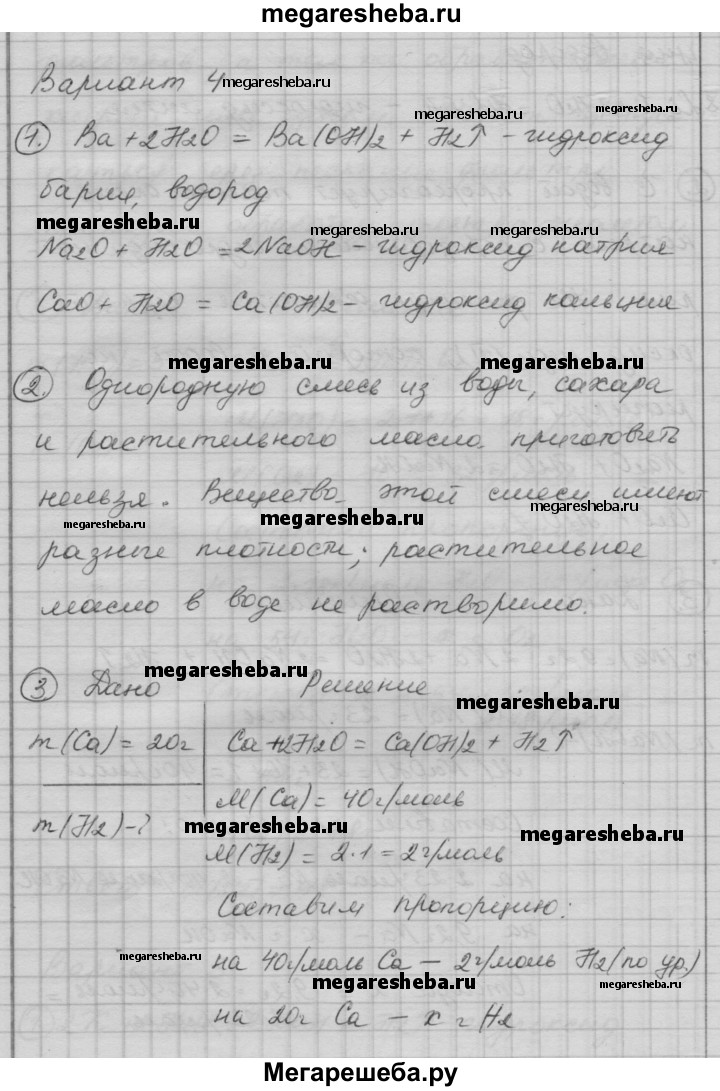 megaresheba.ru
Вариант 4 megaresheba.ru
megaresheba.ru megaresheba.ru
1. Ba + 2H2O = Ba(OH)2 + H2↑ - гидроксид
бария, водород
megaresheba.ru megaresheba.ru megaresheba.ru
Na2O + H2O = 2NaOH - гидроксид натрия
CaO + H2O = Ca(OH)2 - гидроксид кальция
megaresheba.ru megaresheba.ru
2. Однородную смесь из воды, сахара
и растительного масла приготовить
нельзя. Вещества этой смеси имеют
megaresheba.ru megaresheba.ru megaresheba.ru
разные плотности; растительное
масло в воде не растворимо.
megaresheba.ru
3 Дано Решение
megaresheba.ru
m(Ca) = 20г Ca + 2H2O = Ca(OH)2 + H2↑
M(Ca) = 40г/моль
m(H2) - ? megaresheba.ru megaresheba.ru
M(H2) = 2·1 = 2г/моль
Составим пропорцию:
megaresheba.ru на 40г/моль Ca - 2г/моль H2 (по ур.)
megaresheba.ru megaresheba.ru
на 20г Ca - x г H2
Мегарешеба.ру